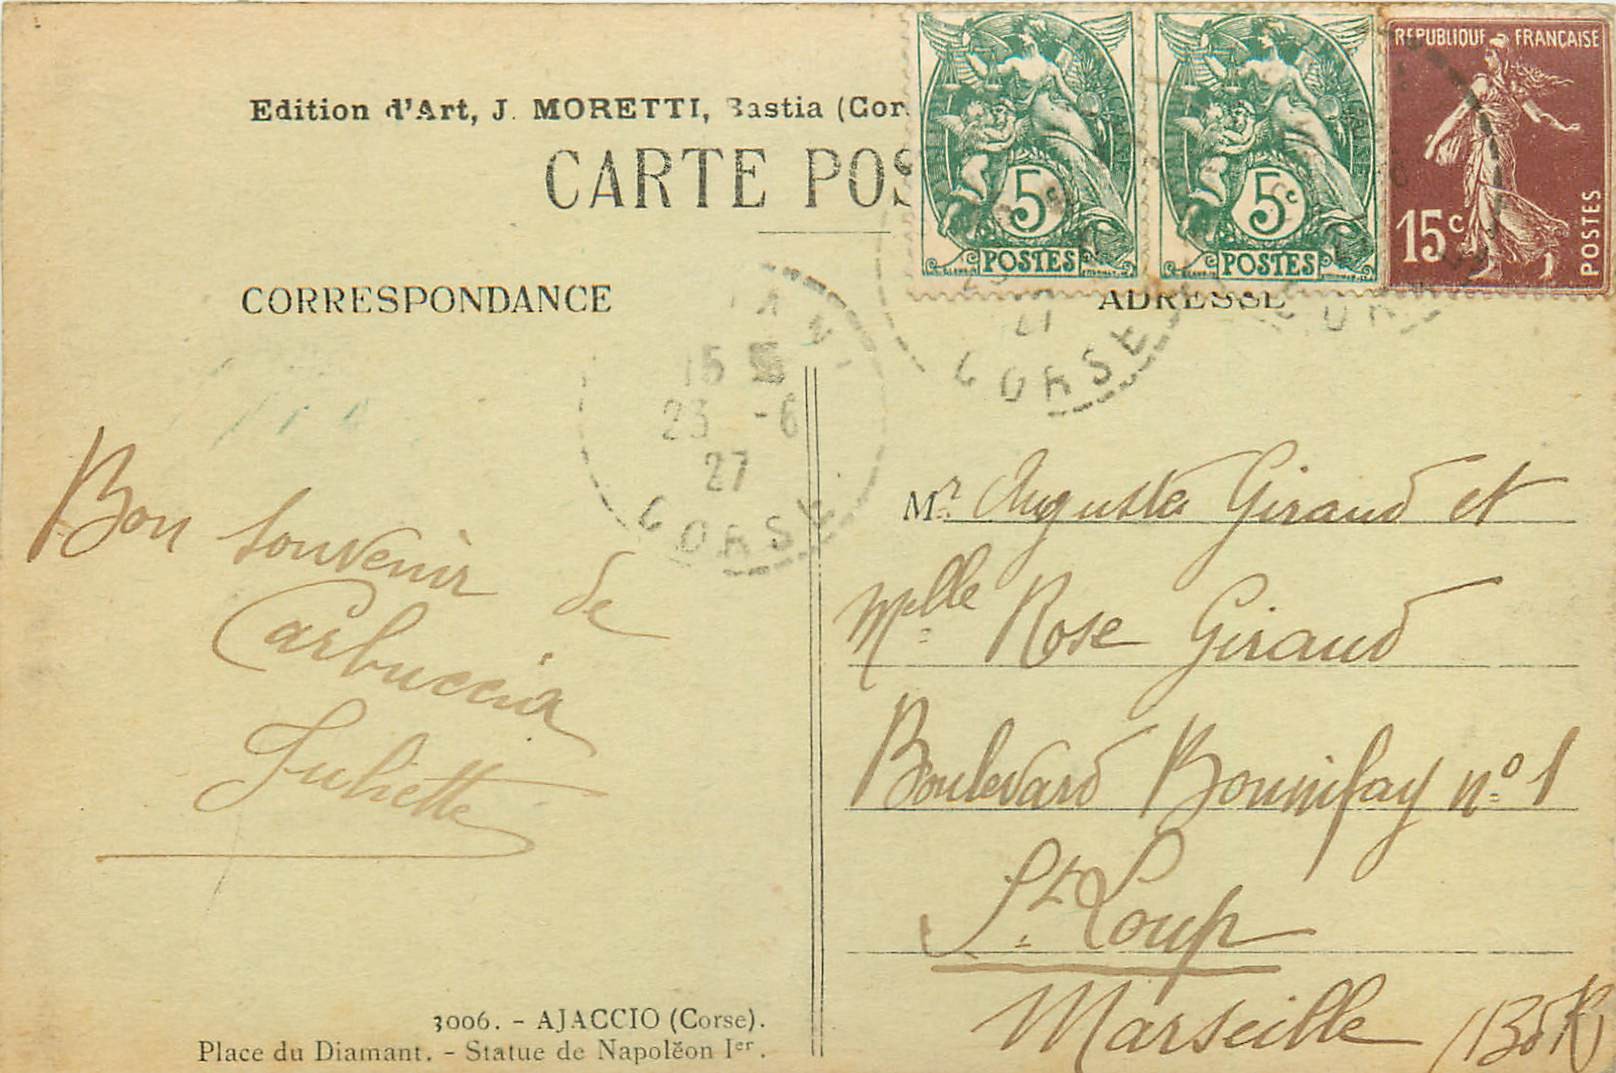 Edition d'Art, J. MORETTI, Bastia (Cor
CARTE POS
CORRESPONDANCE
ADRESSE
5c
POSTES
5c
POSTES
REPUBLIQUE FRANCAISE
15c
POSTES
15
23 -6
27
CORSE
27
CORSE
Bon souvenir de
Carbuccia
Juliette
Mr Auguste Giraud et
Melle Rose Giraud
Boulevard Bonnifay n° 1
St. Loup
Marseille
3006. - AJACCIO (Corse).
Place du Diamant. - Statue de Napoléon Ier.